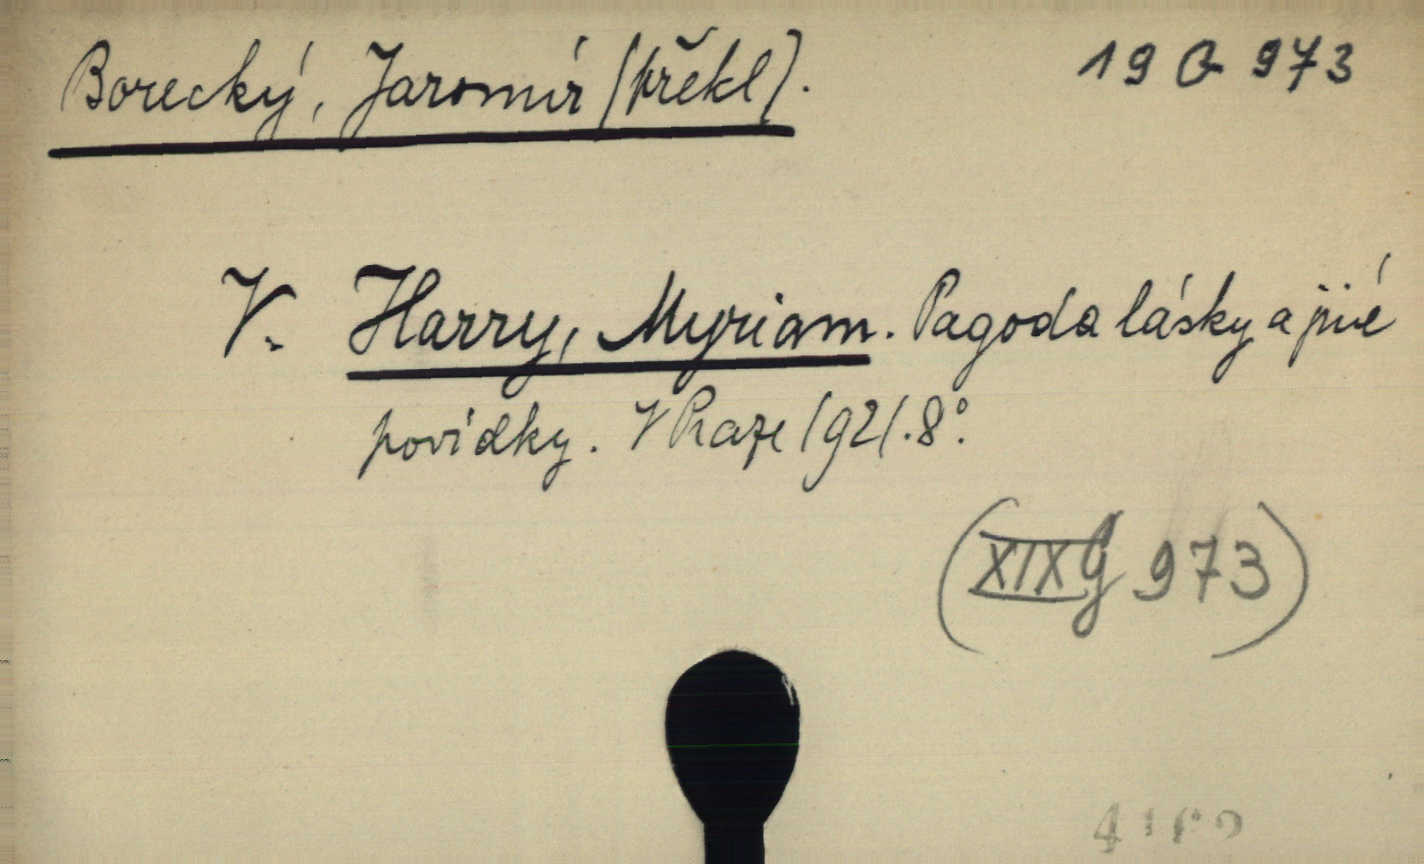 Borecký, Jaromír (překl). 19 G 973
V. Harry, Myriam. Pagoda lásky a jiné
povídky. V Praze 1921. 8°.
(XIX G 973)